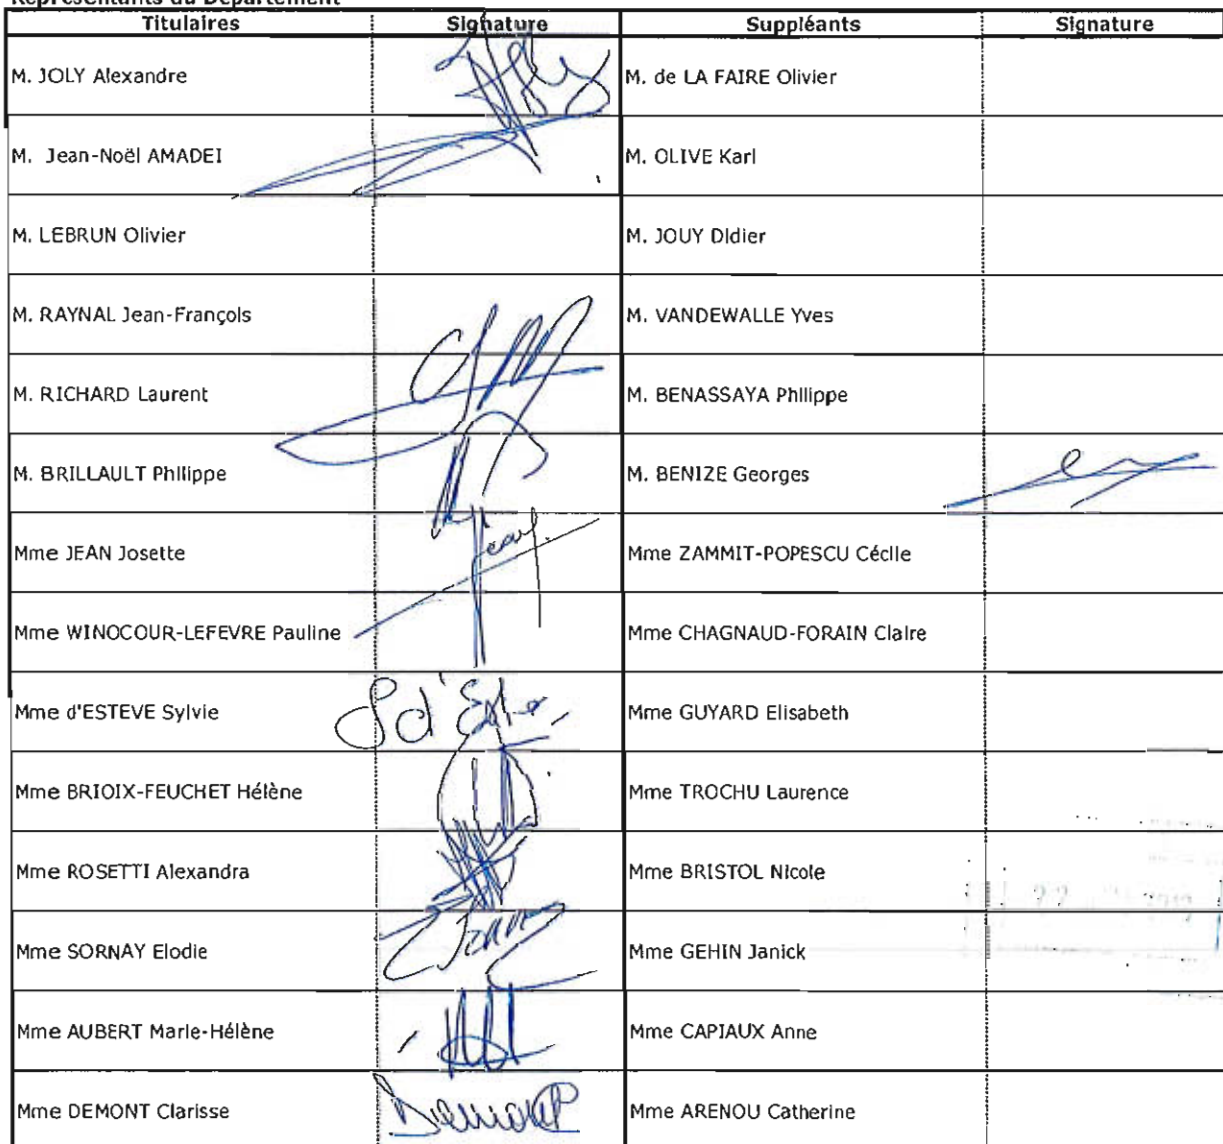 Représentants du Département
Titulaires Signature Suppléants Signature
M. JOLY Alexandre M. de LA FAIRE Olivier
M. Jean-Noël AMADEI M. OLIVE Karl
M. LEBRUN Olivier M. JOUY Didier
M. RAYNAL Jean-François M. VANDEWALLE Yves
M. RICHARD Laurent M. BENASSAYA Philippe
M. BRILLAULT Philippe M. BENIZE Georges
Mme JEAN Josette Jean Mme ZAMMIT-POPESCU Cécile
Mme WINOCOUR-LEFEVRE Pauline Mme CHAGNAUD-FORAIN Claire
Mme d'ESTEVE Sylvie Mme GUYARD Elisabeth
Mme BRIOIX-FEUCHET Hélène Mme TROCHU Laurence
Mme ROSETTI Alexandra Mme BRISTOL Nicole
Mme SORNAY Elodie Mme GEHIN Janick
Mme AUBERT Marie-Hélène Mme CAPIAUX Anne
Mme DEMONT Clarisse Demont Mme ARENOU Catherine